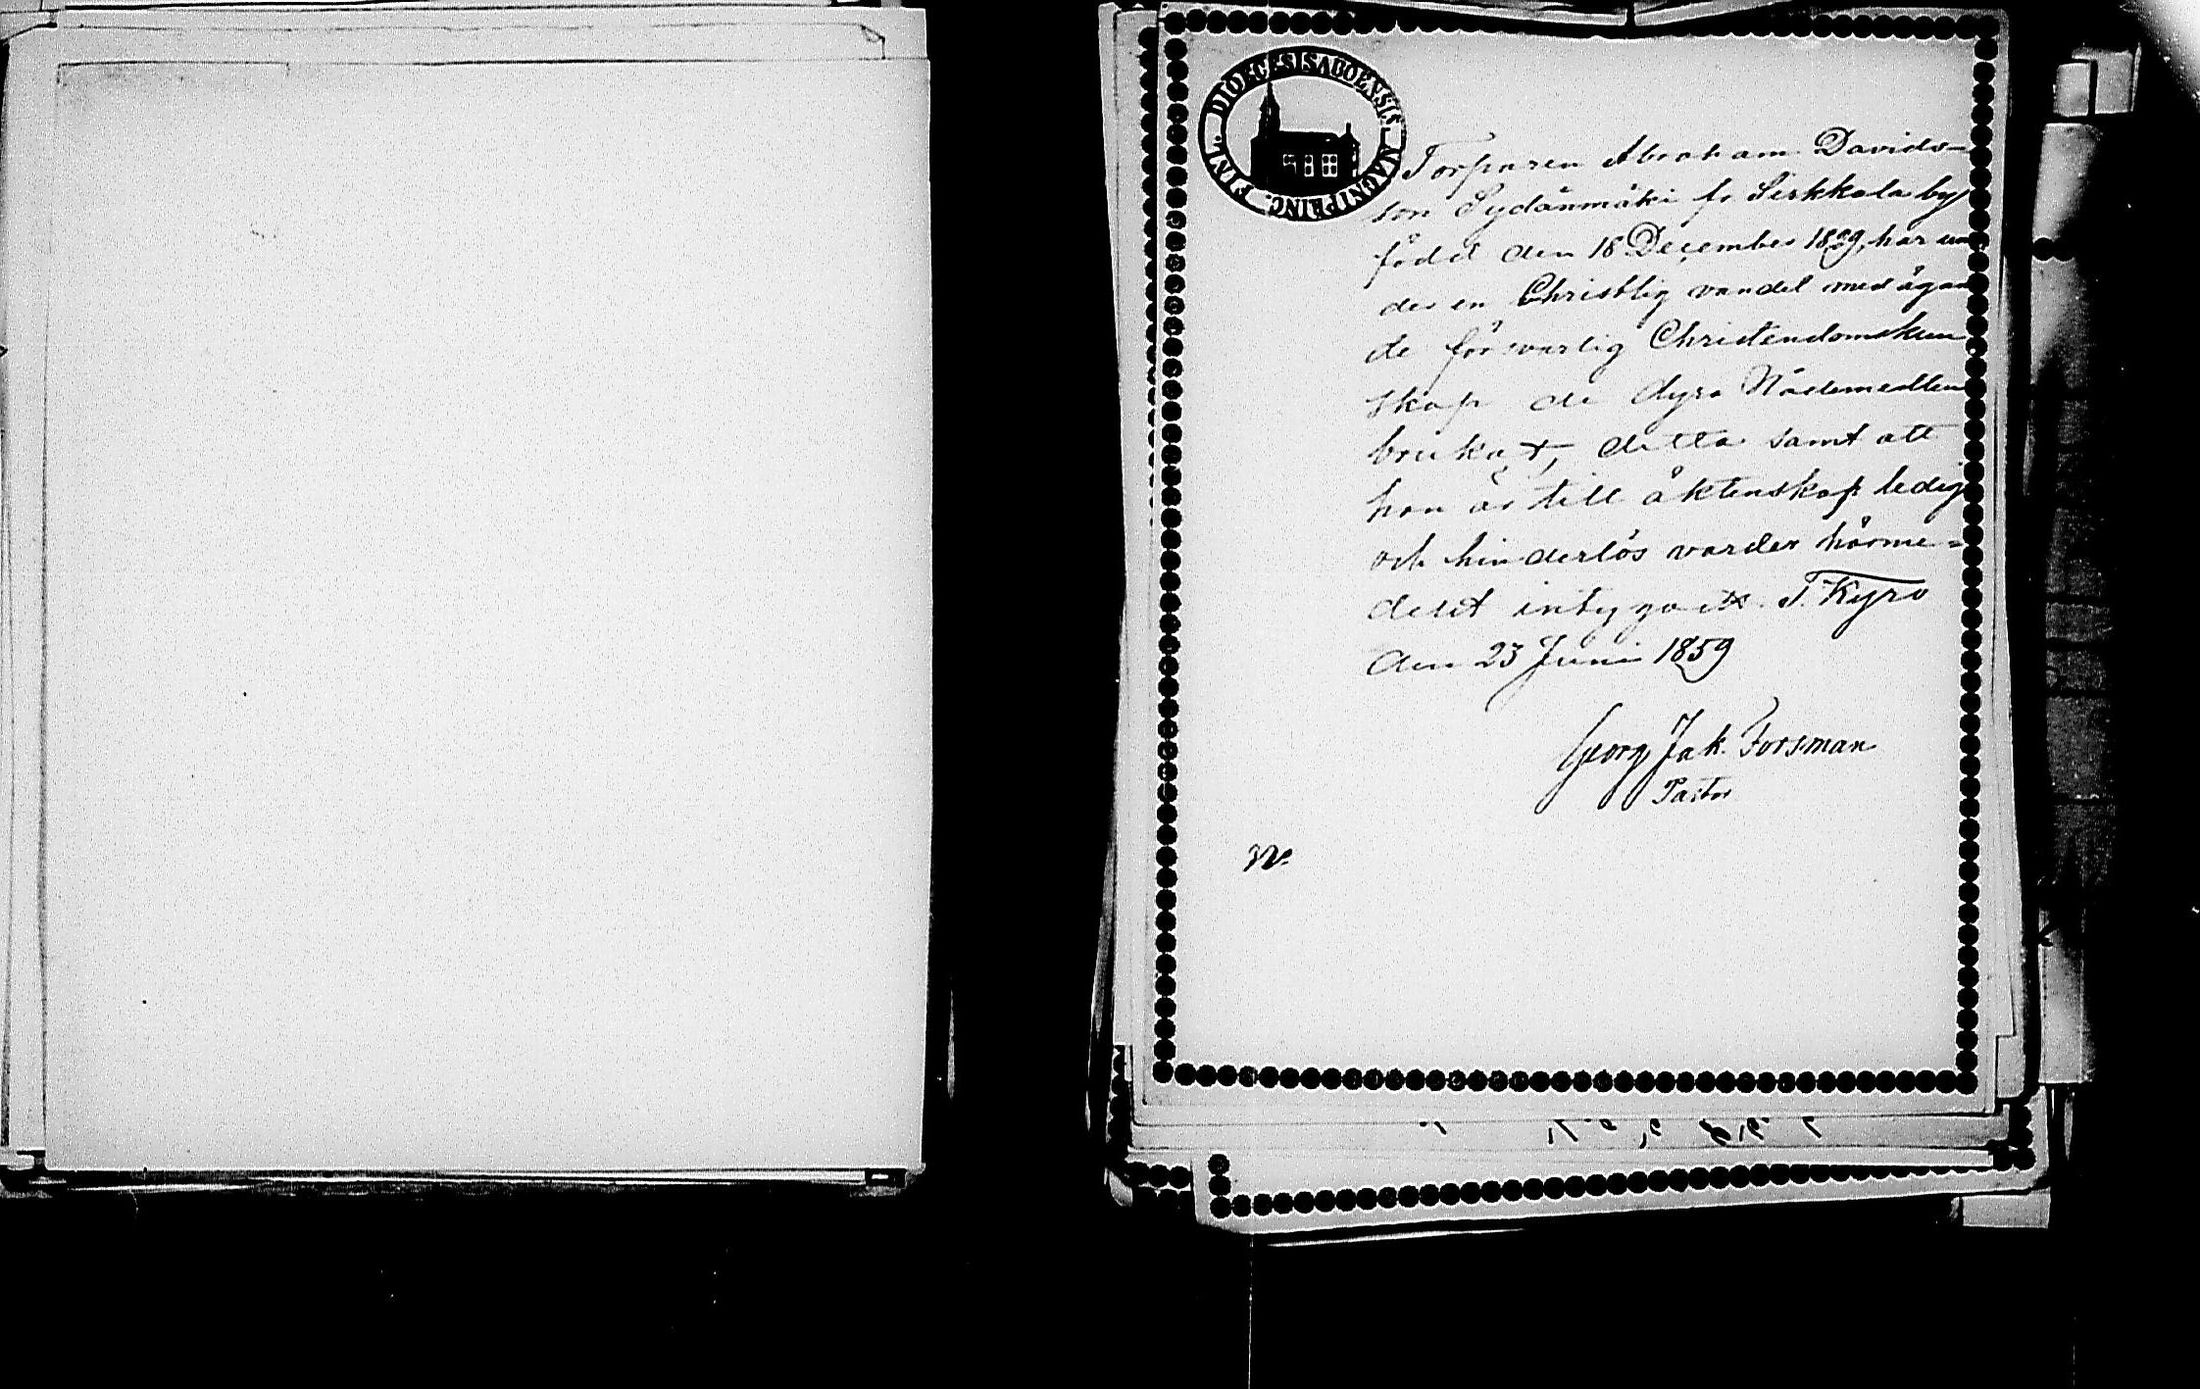 DIOECESIS ABOENSIS MAGNI PRINC. FINL.
Torparen Abraham Davids-
son Sydänmäki fr Sirkkala by
född den 18 December 1829, har un
der en Christlig vandel med ägan
de försvarlig Christendomskun
skap de dyra Nådemedlen
brukat, detta samt att
han är till äktenskap ledig
och hinderlös varder härme=
delst intygadt. T. Kyro
den 23 Juni 1859
Georg Jak. Forsman
Pastor